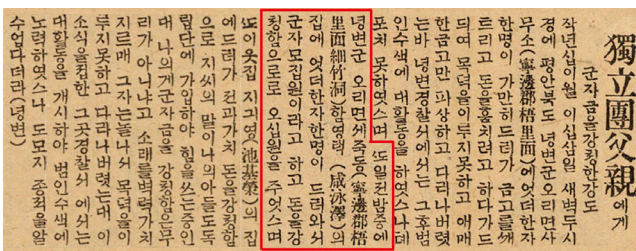 獨立團父親에게
군자금을강청한강도
작년십이월 이십삼일 새벽두시
경에 평안북도 녕변군오리면사
무소(寧邊郡梧里面)에엇더한자
한명이 가만히드러가 금고를깨
트리고 돈을훔치려고 하다가
듸여 목뎍을이루지못하고 애매
한금고만 파상하고 다라나버렷
는바 녕변경찰서에서는 그후범
인수색에 대활동을 하엿스나 데
포치 못하엿스며 또일전밤중에
녕변군 오리면세죽동(寧邊郡梧
里面細竹洞)한영택(咸泳澤)의
집에 엇더한자한명이 드러와서
군자모집원이라고 하고 돈을강
청함으로로 오십원을 주엇스며
또이웃집 지긔영(池基榮)의 집
에드러가 전과가치 돈을강청함
으로 지씨의 말이나의아들도독
립단에 가입하야 힘을쓰는중인
대 나의게군자금을 강청함은무
리가 아니냐고 소래를벽력가치
지르매 그자는놀나서 목뎍을이
루지못하고 다라나버렷는대 이
소식을접한 그곳경찰서에서는
대활동을 개시하야 범인수색에
노력하엿스나 도모지 종적을알
수업다더라(녕변)